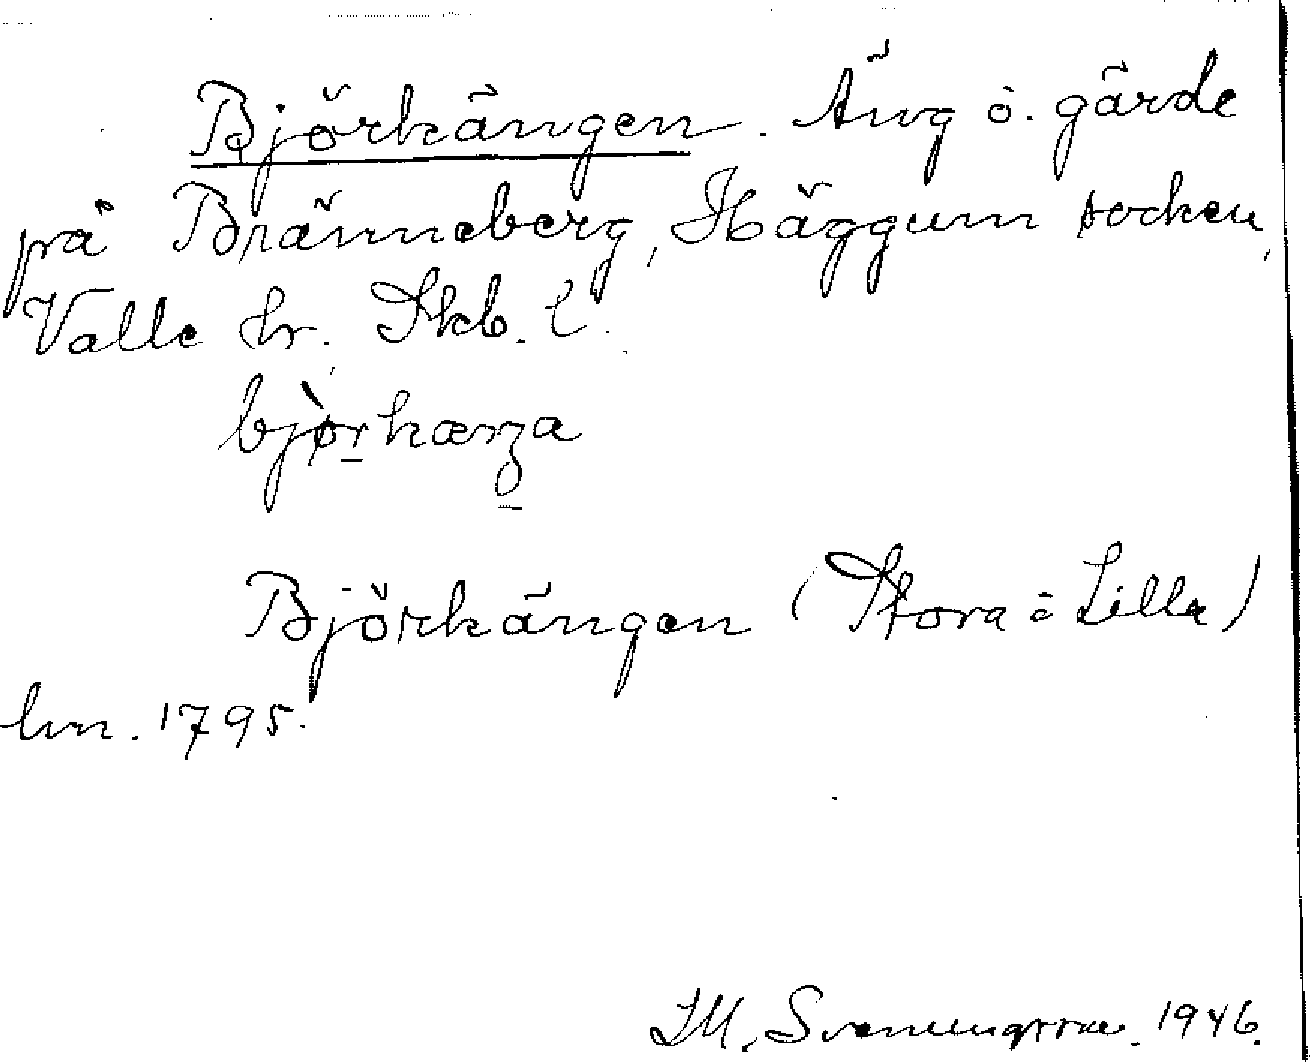 Björkängen. Äng ö. gärde
på Bränneberg, Häggum socken,
Valle hr. Skb. l.
bjòrkæŋa
Björkängen (Stora å Lilla)
hm. 1795.
IM. Svenungsson. 1946.